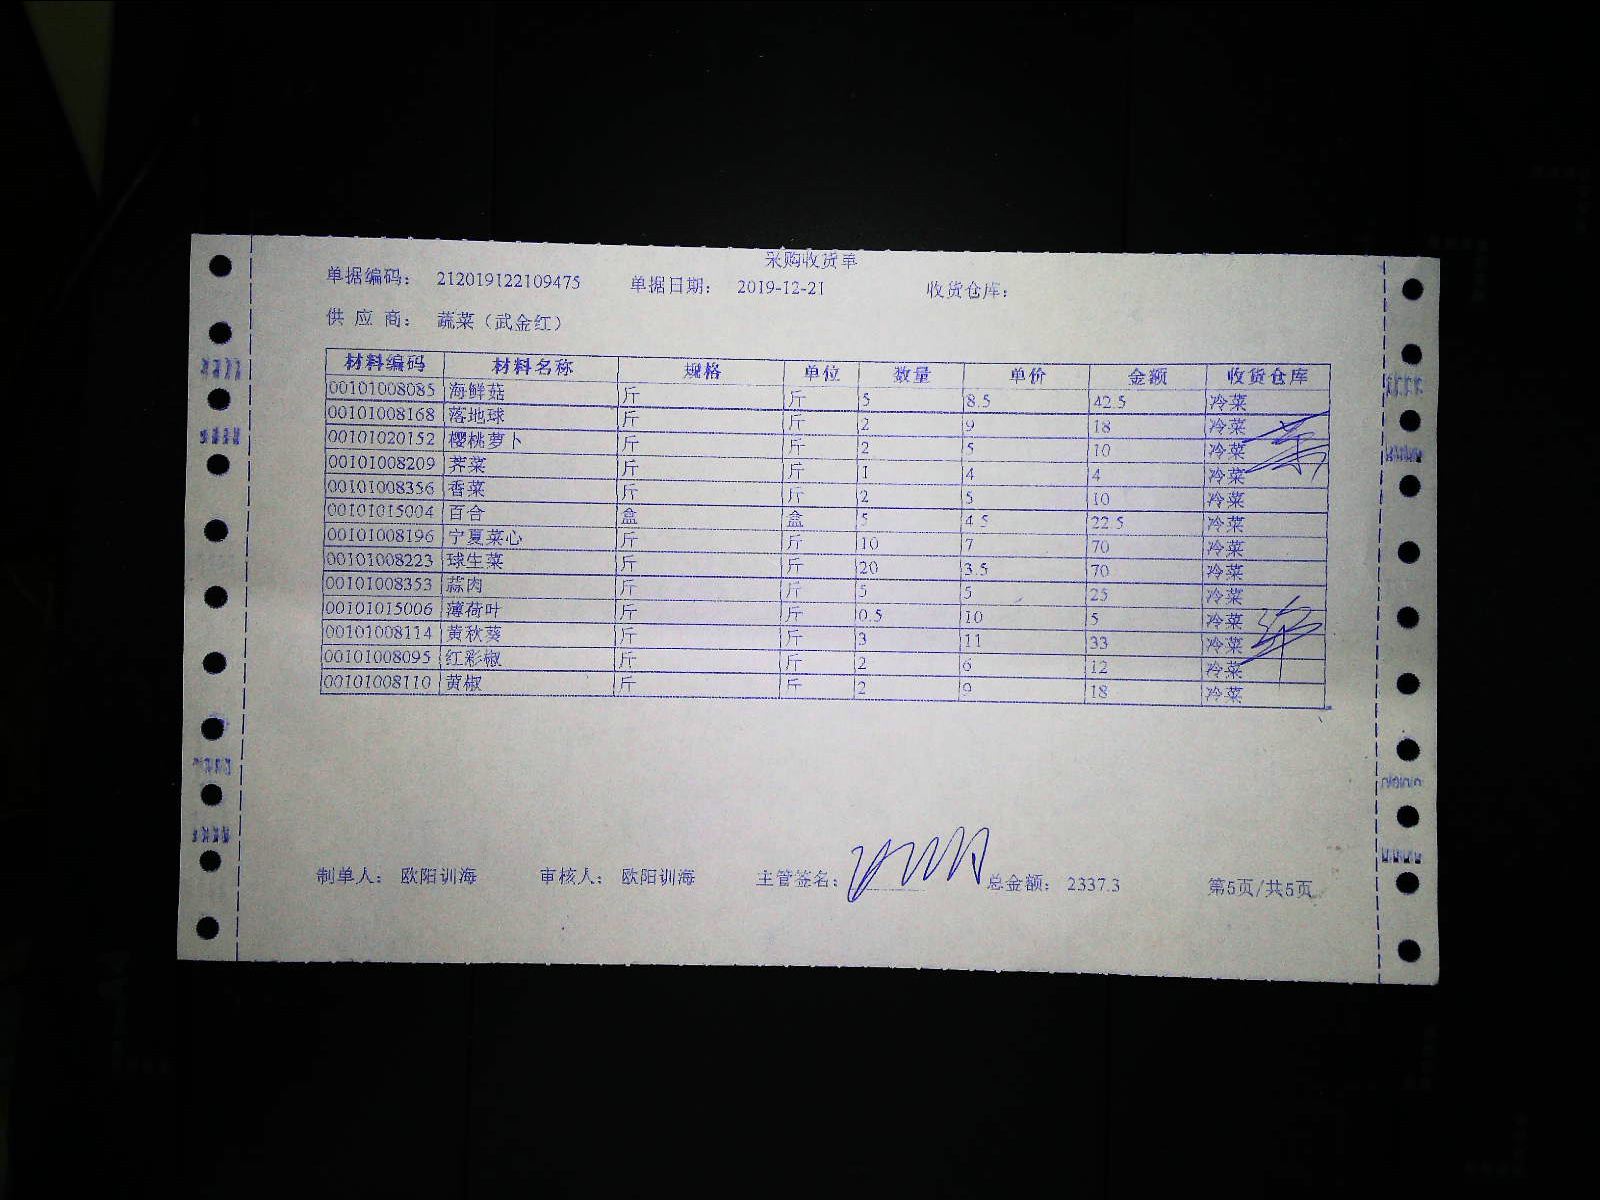 采购收货单
单据编码： 212019122109475 单据日期： 2019-12-21 收货仓库：
供 应 商： 蔬菜（武金红）
材料编码 材料名称 规格 单位 数量 单价 金额 收货仓库
00101008085 海鲜菇 斤 斤 5 8.5 42.5 冷菜
00101008168 落地球 斤 斤 2 9 18 冷菜
00101020152 樱桃萝卜 斤 斤 2 5 10 冷菜
00101008209 荠菜 斤 斤 1 4 4 冷菜
00101008356 香菜 斤 斤 2 5 10 冷菜
00101015004 百合 盒 盒 5 4.5 22.5 冷菜
00101008196 宁夏菜心 斤 斤 10 7 70 冷菜
00101008223 球生菜 斤 斤 20 3.5 70 冷菜
00101008353 蒜肉 斤 斤 5 5 25 冷菜
00101015006 薄荷叶 斤 斤 0.5 10 5 冷菜
00101008114 黄秋葵 斤 斤 3 11 33 冷菜
00101008095 红彩椒 斤 斤 2 6 12 冷菜
00101008110 黄椒 斤 斤 2 9 18 冷菜
制单人： 欧阳训海 审核人： 欧阳训海 主管签名： 总金额： 2337.3 第5页/共5页